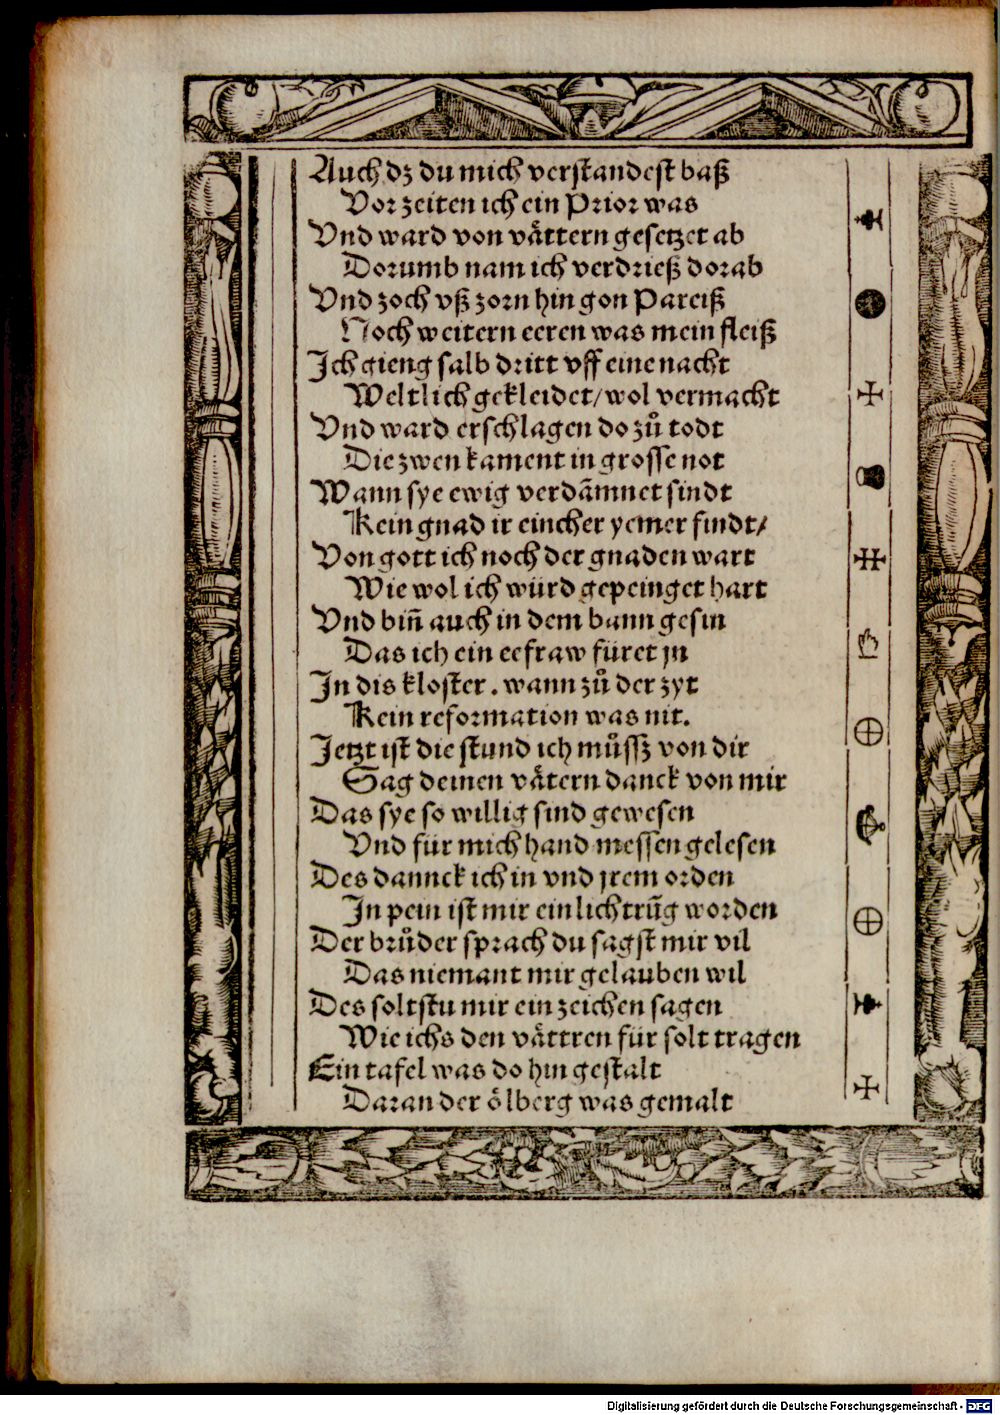 Auch dz du mich verstandest baß
Vor zeiten ich ein Prior was
Vnd ward von våttern gesetzet ab
Dorumb nam ich verdrieß dorab
Vnd zoch vß zorn hin gon Pareiß
Noch weitern eeren was mein fleiß
Jch gieng salb dritt vff eine nacht
Weltlich gekleidet/ wol vermacht
Vnd ward erschlagen do zů todt
Die zwen kament in grosse not
Wann sye ewig verdãmnet sindt
Kein gnad ir eincher yemer findt/
Von gott ich noch der gnaden wart
Wie wol ich würd gepeinget hart
Vnd biñ auch in dem bann gesin
Das ich ein eefraw füret jn
Jn dis kloster. wann zů der zyt
Kein reformation was nit.
Jetzt ist die stund ich můssz von dir
Sag deinen våtern danck von mir
Das sye so willig sind gewesen
Vnd für mich hand messen gelesen
Des dannck ich in vnd jrem orden
Jn pein ist mir ein lichtrũg worden
Der brůder sprach du sagst mir vil
Das niemant mir gelauben wil
Des soltstu mir ein zeichen sagen
Wie ichs den våttren für solt tragen
Ein tafel was do hin gestalt
Daran der ölberg was gemalt
Digitalisierung gefördert durch die Deutsche Forschungsgemeinschaft - DFG